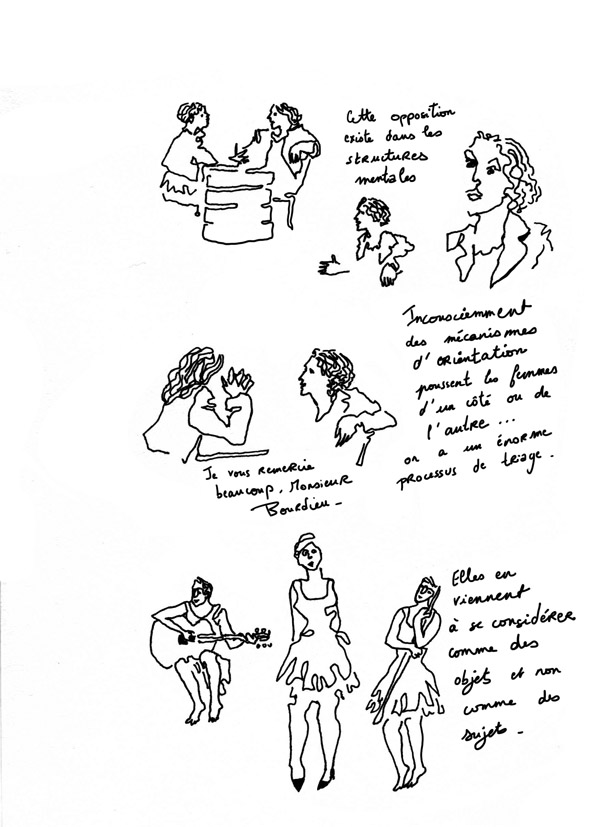 Cette opposition
existe dans les
structures
mentales
Inconsciemment
des mécanismes
d'orientation
poussent les femmes
d'un côté ou de
l'autre ...
on a un énorme
processus de triage.
Je vous remercie
beaucoup, Monsieur
Bourdieu_
Elles en
viennent
à se considérer
comme des
objets et non
comme des
sujets_